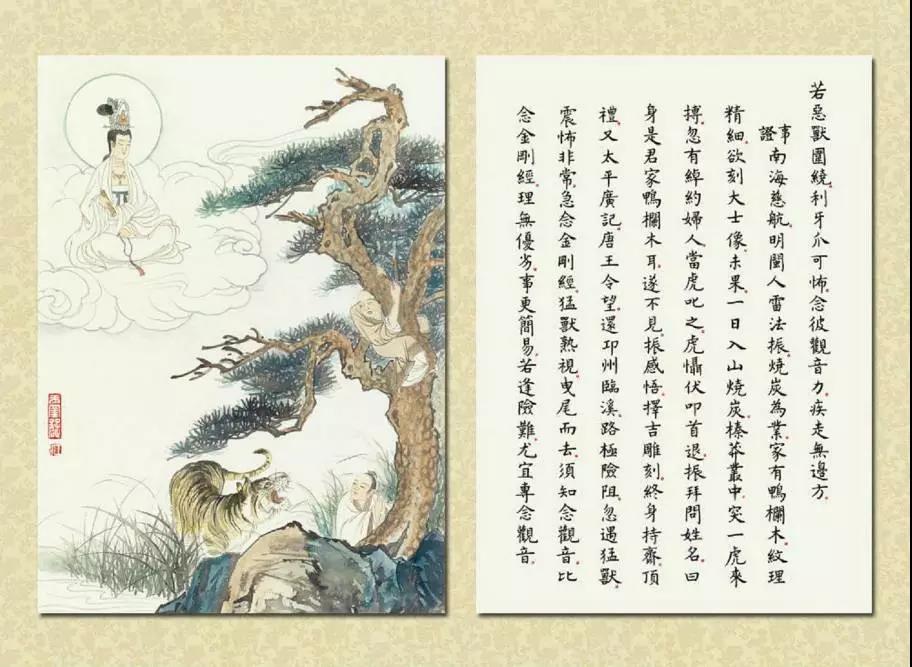 若惡獸圍繞利牙爪可怖念彼觀音力疾走無邊方
事證南海慈航明閩人雷法振燒炭為業家有鴨欄木紋理
精細欲刻大士像未果一日入山燒炭榛莽叢中突一虎來
搏忽有綽約婦人當虎叱之虎懾伏叩首退振拜問姓名曰
身是君家鴨欄木耳遂不見振感悟擇吉雕刻終身持齋頂
禮又太平廣記唐王令望還邛州臨溪路極險阻忽遇猛獸
震怖非常急念金剛經猛獸熟視曳尾而去須知念觀音比
念金剛經理無優劣事更簡易若逢險難尤宜專念觀音